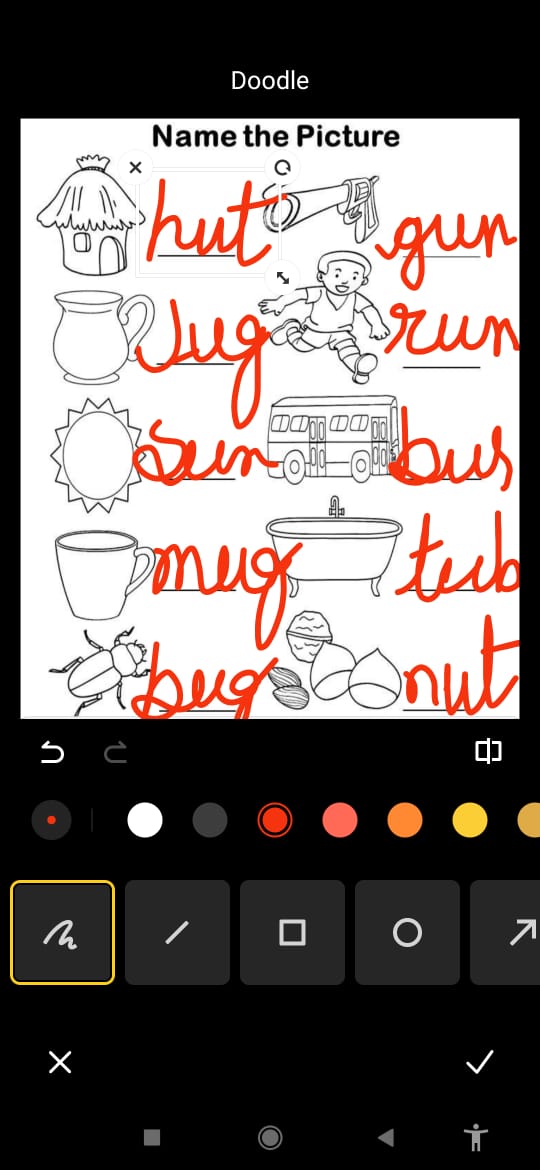 Doodle
Name the Picture
hut gun
Jug run
Sun bus
mug tub
bug nut